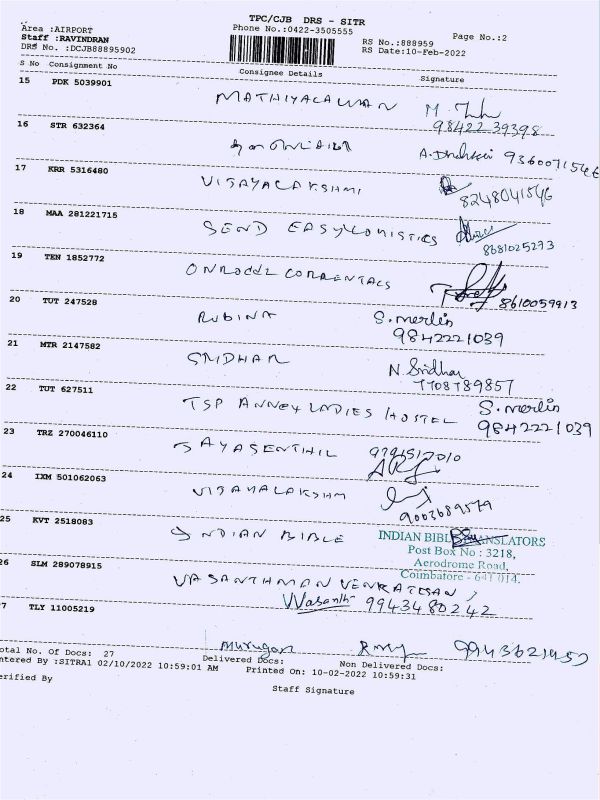 TPC/CJB DRS - SITR
Area :AIRPORT Phone No.:0422-3505555 Page No.:2
Staff :RAVINDRAN RS No.:888959
DRS No. :DCJB88895902 RS Date:10-Feb-2022
S No Consignment No Consignee Details Signature
15 PDK 5039901
MATHIYALAGAN
98422 39398
16 STR 632364
9360071546
17 KRR 5316480
VIJAYALAKSHMI
8248041546
18 MAA 281221715
SEND EASYLOGISTICS
8681025273
19 TEN 1852772
8610059913
20 TUT 247528
RUBINA S. merlin
9842221039
21 MTR 2147582
SRIDHAR N. Sridhar
7708789857
22 TUT 627511
TSP ANNEY LADIES HOSTEL S. merlin
9842221039
23 TRZ 270046110
JAYASENTHIL 9791517010
24 IXM 501062063
VIJAYALAKSHMI
9003689579
25 KVT 2518083
INDIAN BIBLE INDIAN BIBLE TRANSLATORS
Post Box No : 3218,
Aerodrome Road,
Coimbatore - 641 014.
26 SLM 289078915
VASANTHMAN VENKATESAN
Wasanth 9943480242
7 TLY 11005219
Murugan 9943621957
otal No. of Docs: 27 Delivered Docs: Non Delivered Docs:
ntered By :SITRA1 02/10/2022 10:59:01 AM Printed On: 10-02-2022 10:59:31
erified By Staff Signature